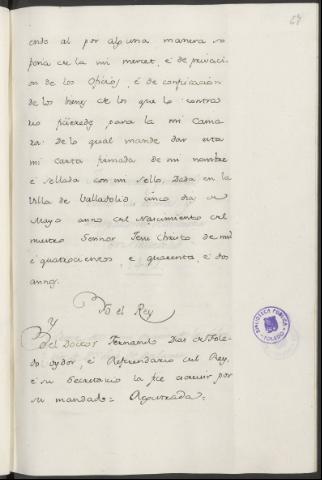 ende al por alguna manera so
pena de la mi merced, é de privaci
on de los Oficios, é de confiscación
de los bienes de los que lo contra
rio ficieredes para la mi Cama
ra: de lo qual mande dar esta
mi carta firmada de mi nombre
é sellada con mi sello. Dada en la
Villa de Valladolid, cinco dias de
Mayo anno del Nascimiento del
nuestro Sennor Jesu Christo de mil
é quatrocientos, e quarenta, é dos
annos.
Yo el Rey
Y
del Doctor Fernando Dias de Tole
do oydor, é Referendario del Rey,
é su Secretario la fice escrivir por
su mandado = Registrada =
BIBLIOTECA PUBLICA
TOLEDO